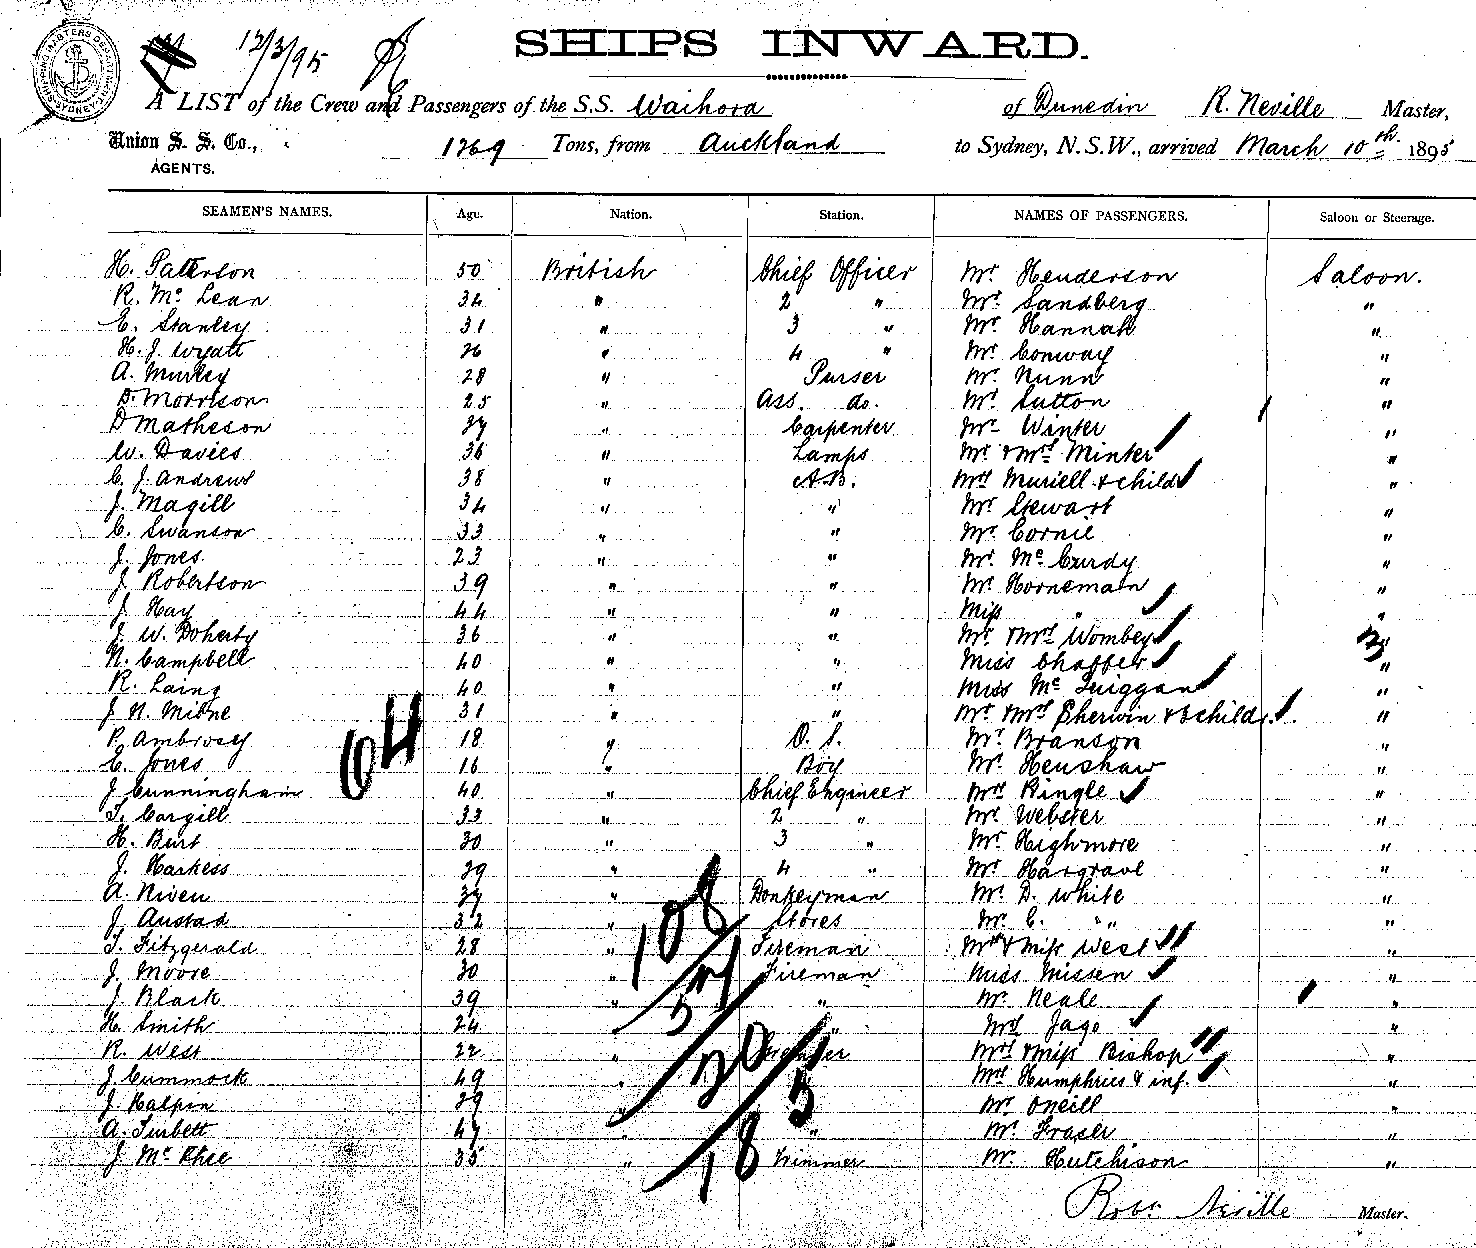 12/3/95
SHIPS INWARD.
A LIST of the Crew and Passengers of the S.S. Waihora of Dunedin R. Neville Master,
Union S. S. Co., 1269 Tons, from Auckland to Sydney, N.S.W., arrived March 10th 1895
AGENTS.
SEAMEN'S NAMES. Age. Nation. Station. NAMES OF PASSENGERS. Saloon or Steerage.
H. Paterson 50 British Chief Officer Mr Henderson Saloon.
R. Mc Lean 34 " 2 " Mr Sandberg "
E. Stanley 31 " 3 " Mr Hannah "
H. J. Wyatt 26 " 4 " Mr Conway "
A. Murray 28 " Purser Mr Nunn "
D. Morrison 25 " Ass. do. Mr Sutton "
D Matheson 37 " Carpenter Mr Winter "
W. Davies 36 " Lamps Mr & Mrs Minter "
C. J. Andrews 38 " A.B. Mrs Muriell & child "
J. Magill 34 " " Mr Stewart "
C. Swanson 33 " " Mr Cornie "
J. Jones 23 " " Mr Mc Curdy "
J. Robertson 39 " " Mr Horneman "
J. Hay 44 " " Miss " "
J. W. Doherty 36 " " Mr & Mrs Wombey "
N. Campbell 40 " " Miss Chaffer "
R. Laing 40 " " Miss Mc Guiggan "
J. N. Milne 31 " " Mr & Mrs Sherwin & 3 child. "
P. Ambrosey 18 " O. S. Mr Branson "
C. Jones 16 " Boy Mr Henshaw "
J. Cunningham 40 " Chief Engineer Mrs Pingle "
T. Cargill 33 " 2 " Mr Webster "
H. Burt 30 " 3 " Mr Highmore "
J. Harkess 29 " 4 " Mr Hargrave "
A. Niven 37 " Donkeyman Mr D. White "
J. Austad 32 " Stores Mr C. " "
T. Fitzgerald 28 " Fireman Mrs & Miss West "
J. Moore 30 " Fireman Miss Missen "
J. Black 39 " " Mr Neale "
H. Smith 24 " " Mrs Jago "
R. West 22 " Mrs & Miss Bishop "
J. Cummock 49 " Mrs Humphries & inf. "
J. Halpin 29 " Mr Oneill "
A. Turbett 47 " " Mr Fraser "
J. Mc Phee 35 " Trimmer Mr Hutchison "
64
108
54
20
5
18
Robt Neville Master.